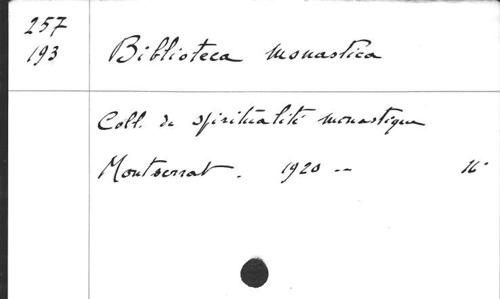 257
193
Biblioteca monastica
Coll. de spiritualité monastique
Montserrat. 1920 -- 16°